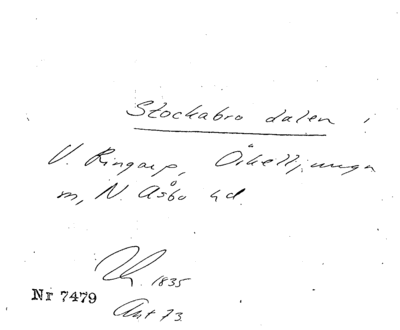 Stockabro dalen i
V. Ringarp, Örkelljunga
m, N. Åsbo hd.
1835
Nr 7479
Ant 73.